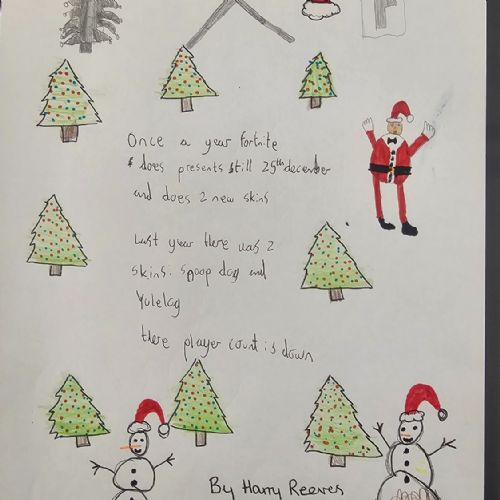 Once a year fortnite
does presents till 25th december
and does 2 new skins
Last year there was 2
skins. Snoop dog and
Yulelog
there player count is down
By Harry Reeves